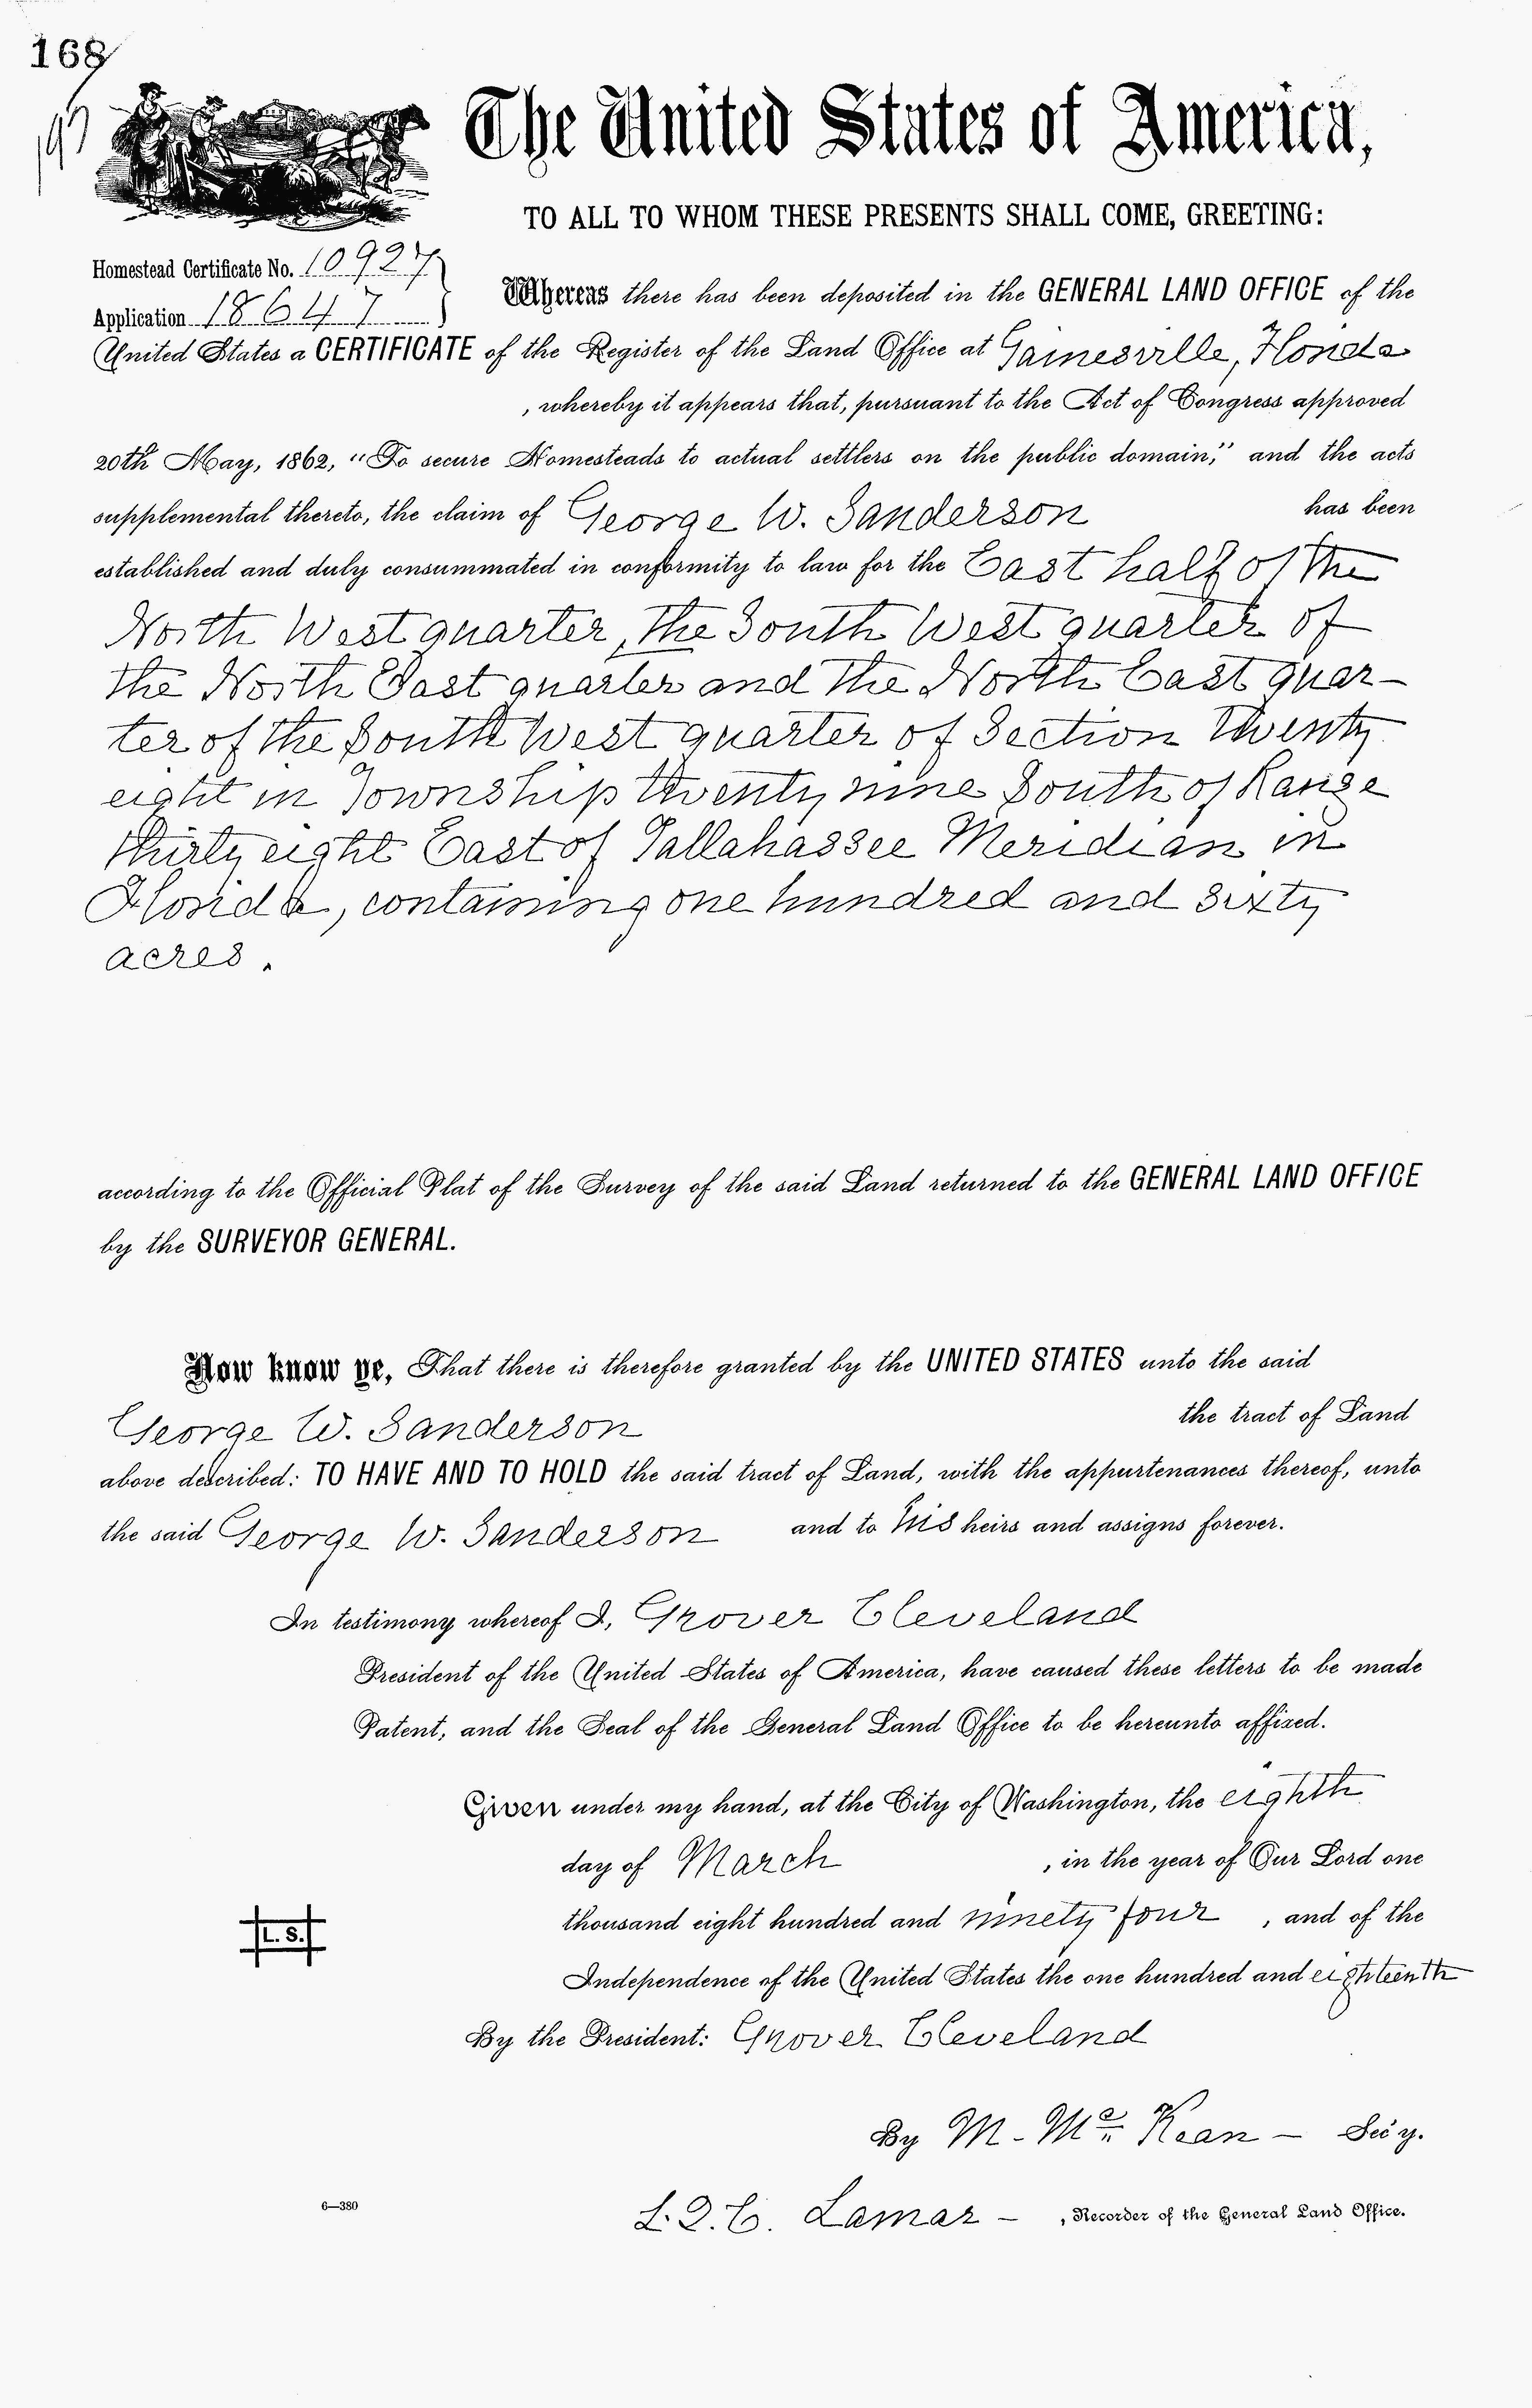 168
The United States of America,
TO ALL TO WHOM THESE PRESENTS SHALL COME, GREETING:
Homestead Certificate No. 10927
Application 18647
Whereas there has been deposited in the GENERAL LAND OFFICE of the
United States a CERTIFICATE of the Register of the Land Office at Gainesville, Florida
, whereby it appears that, pursuant to the Act of Congress approved
20th May, 1862, "To secure Homesteads to actual settlers on the public domain," and the acts
supplemental thereto, the claim of George W. Sanderson has been
established and duly consummated in conformity to law for the East half of the
North West quarter, the South West quarter of
the North East quarter and the North East quar-
ter of the South West quarter of Section twenty
eight in Township twenty nine South of Range
thirty eight East of Tallahassee Meridian in
Florida, containing one hundred and sixty
acres.
according to the Official Plat of the Survey of the said Land returned to the GENERAL LAND OFFICE
by the SURVEYOR GENERAL.
Now know ye, That there is therefore granted by the UNITED STATES unto the said
George W. Sanderson the tract of Land
above described: TO HAVE AND TO HOLD the said tract of Land, with the appurtenances thereof, unto
the said George W. Sanderson and to his heirs and assigns forever.
In testimony whereof I, Grover Cleveland
President of the United States of America, have caused these letters to be made
Patent, and the Seal of the General Land Office to be hereunto affixed.
Given under my hand, at the City of Washington, the eighth
day of March , in the year of Our Lord one
thousand eight hundred and ninety four , and of the
Independence of the United States the one hundred and eighteenth
L. S.
By the President: Grover Cleveland
By M. McKean – Sec'y.
6—380
L. Q. C. Lamar – , Recorder of the General Land Office.